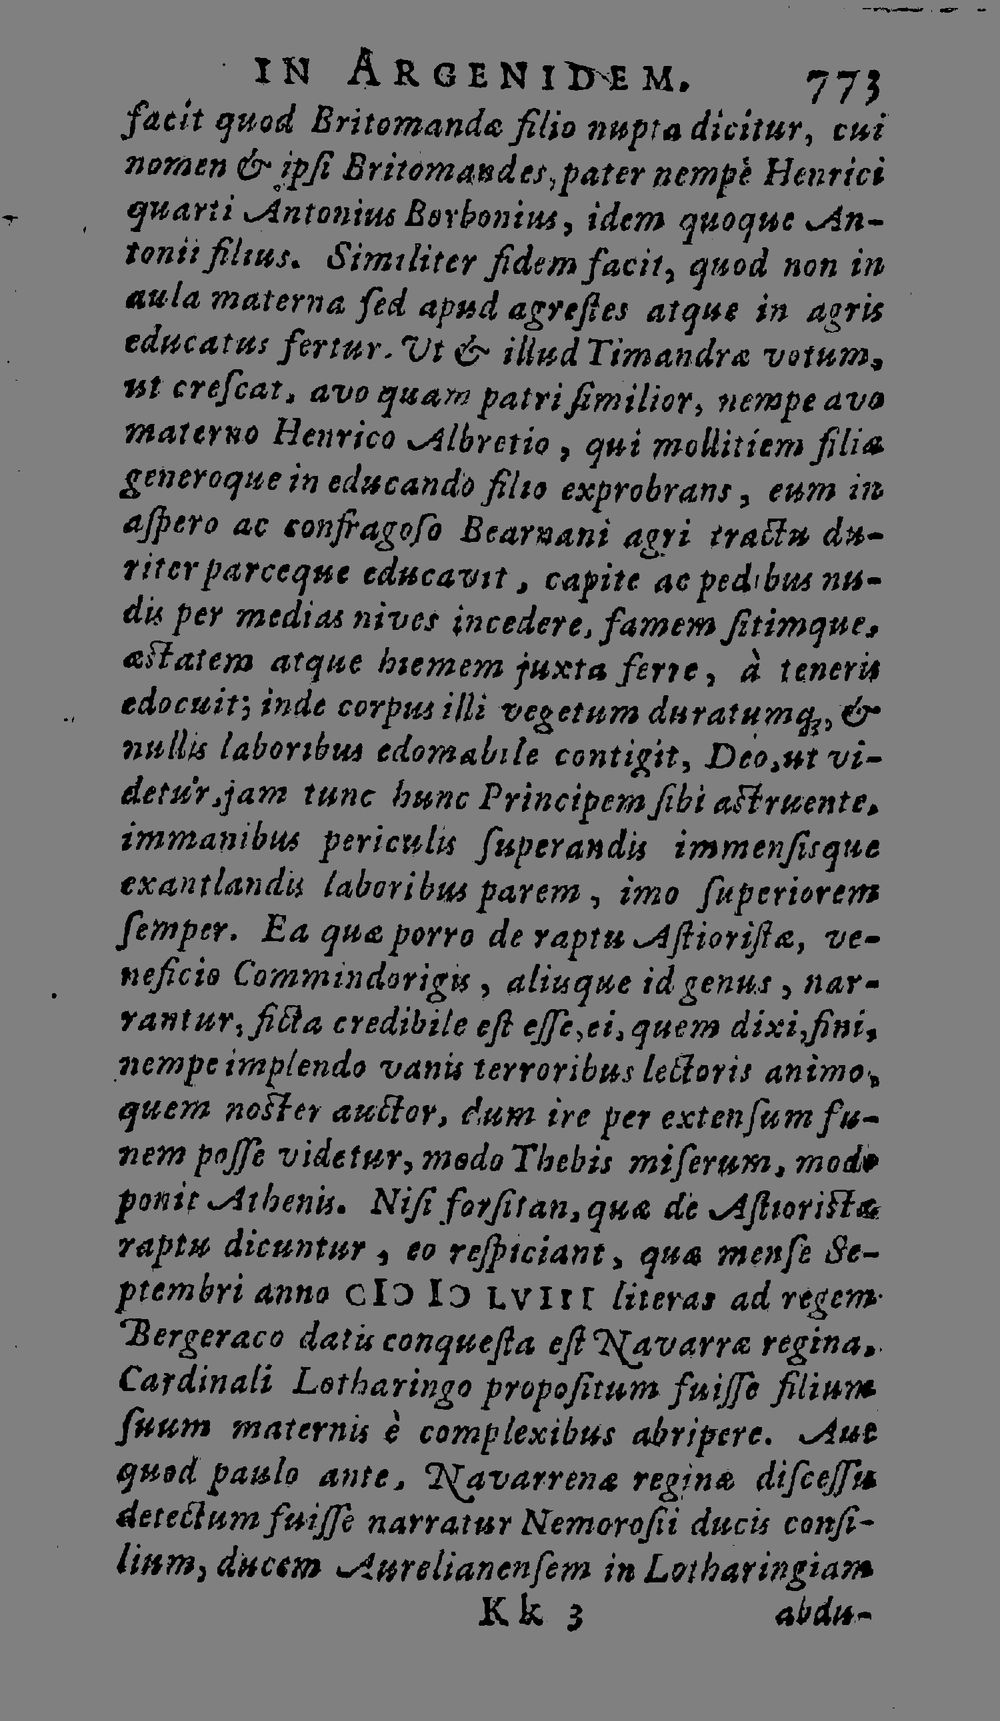 IN ARGENIDEM. 773
facit quod Britomandæ filio nupta dicitur, cui
nomen & ipſi Britomandes, pater nempè Henrici
quarti Antonius Borbonius, idem quoque An-
tonii filius. Similiter fidem facit, quod non in
aula materna ſed apud agreſtes atque in agris
educatus fertur. Ut & illud Timandræ votum,
ut creſcat, avo quam patri ſimilior, nempe avo
materno Henrico Albretio, qui mollitiem filiæ
generoque in educando filio exprobrans, eum in
aſpero ac confragoſo Bearnani agri tractu du-
riter parceque educavit, capite ac pedibus nu-
dis per medias nives incedere, famem ſitimque,
æſtatem atque hiemem juxta ferre, à teneris
edocuit; inde corpus illi vegetum duratumq́;, &
nullis laboribus edomabile contigit, Deo, ut vi-
detur, jam tunc hunc Principem ſibi aſtruente,
immanibus periculis ſuperandis immenſisque
exantlandis laboribus parem, imo ſuperiorem
ſemper. Ea quæ porro de raptu Aſtioriſtæ, ve-
neficio Commindorigis, aliisque id genus, nar-
rantur, ficta credibile eſt eſſe, ei, quem dixi, fini,
nempe implendo vanis terroribus lectoris animo,
quem noſter auctor, dum ire per extenſum fu-
nem poſſe videtur, modo Thebis miſerum, modo
ponit Athenis. Niſi forſitan, quæ de Aſtioriſtæ
raptu dicuntur, eo reſpiciant, quæ menſe Se-
ptembri anno CIↃ IↃ LVIII literas ad regem
Bergeraco datis conqueſta eſt Navarræ regina,
Cardinali Lotharingo propoſitum fuiſſe filium
ſuum maternis è complexibus abripere. Aut
quod paulo ante, Navarrenæ reginæ diſceſſu
detectum fuiſſe narratur Nemoroſii ducis conſi-
lium, ducem Aurelianenſem in Lotharingiam
Kk 3 abdu-